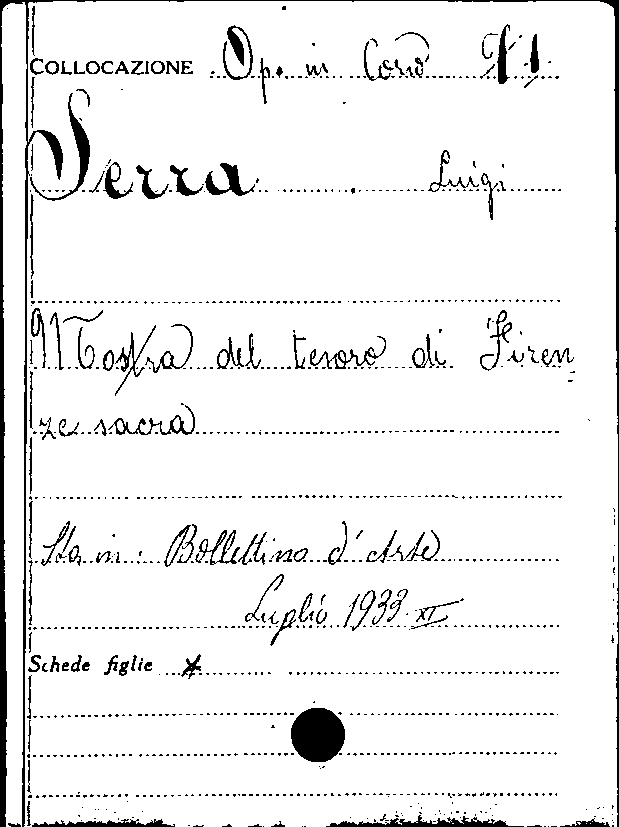 COLLOCAZIONE Op. in Corso
Serra Luigi
Mostra del tesoro di Firen
ze sacra
Sta in: Bollettino d'Arte
Luglio 1933 XI
Schede figlie